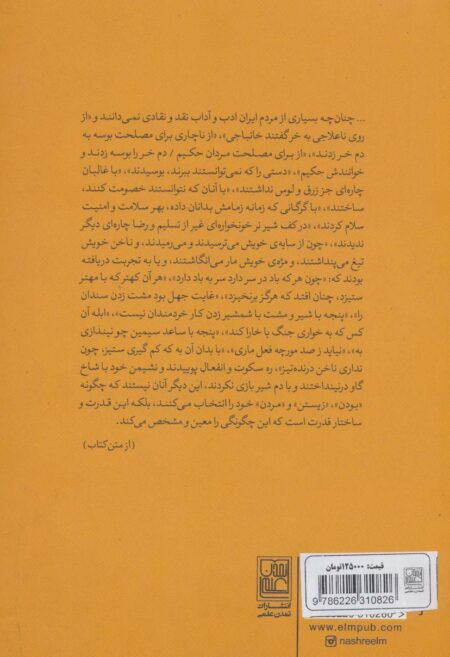 ... چنان‌چه بسیاری از مردم ایران ادب و آداب نقد و نقادی نمی‌دانند و «از
روی ناعلاجی به خر گفتند خانباجی»، «از ناچاری برای مصلحت بوسه به
دم خر زدند»، «از برای مصلحت مردان حکیم / دم خر را بوسه زدند و
خواندنش حکیم»، «دستی را که نمی‌توانستند ببرند، بوسیدند»، «با غالبان
چاره‌ای جز زرقی و لوس نداشتند»، «با آنان که نتوانستند خصومت کنند،
ساختند»، «با گرگانی که زمانه زمامش بدانان داده، بهر سلامت و امنیت
سلام کردند»، «در کف شیر نر خونخواره‌ای غیر از تسلیم و رضا چاره‌ای دیگر
ندیدند»، «چون از سایه‌ی خویش می‌ترسیدند و می‌رمیدند، و ناخن خویش
تیغ می‌پنداشتند، و مژه‌ی خویش مار می‌انگاشتند، و یا به تجربت دریافته
بودند که: «چون هر که باد در سر دارد سر به باد دارد»، «هر آن کهتر که با مهتر
ستیزد، چنان افتد که هرگز برنخیزد»، «غایت جهل بود مشت زدن سندان
را»، «پنجه با شیر و مشت با شمشیر زدن کار خردمندان نیست»، «ابله آن
کس که به خواری جنگ با خارا کند»، «پنجه با ساعد سیمین چو نیندازی
به»، «نیاید ز صد مورچه فعل ماری»، «با بدان آن به که کم گیری ستیز، چون
نداری ناخن درنده‌تیز»، ره سکوت و انفعال پوییدند و نشیمن خود با شاخ
گاو درنینداختند و با دم شیر بازی نکردند، این دیگر آنان نیستند که چگونه
«بودن»، «زیستن» و «مردن» خود را انتخاب می‌کنند، بلکه این قدرت و
ساختار قدرت است که این چگونگی را معین و مشخص می‌کند.
(از متن کتاب)
قیمت: ۱۲۵۰۰۰تومان
9 786226 310826
تمدن علمی
انتشارات
تمدن علمی
www.elmpub.com
nashreelm